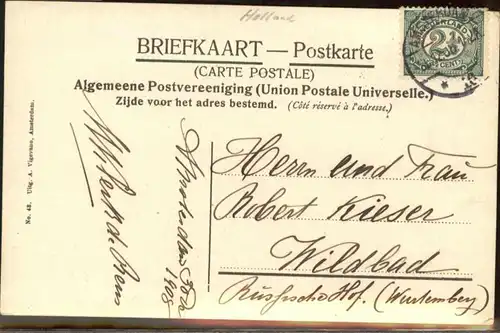 Holland
BRIEFKAART — Postkarte
(CARTE POSTALE)
Algemeene Postvereeniging (Union Postale Universelle.)
Zijde voor het adres bestemd. (Côté réservé à l'adresse.)
2½
CENT
No. 48. Uitg. A. Vigevено, Amsterdam.
Amsterdam
1905
Herrn und Frau
Robert Kieser
Wildbad
Russische Hof. (Wurtemberg)